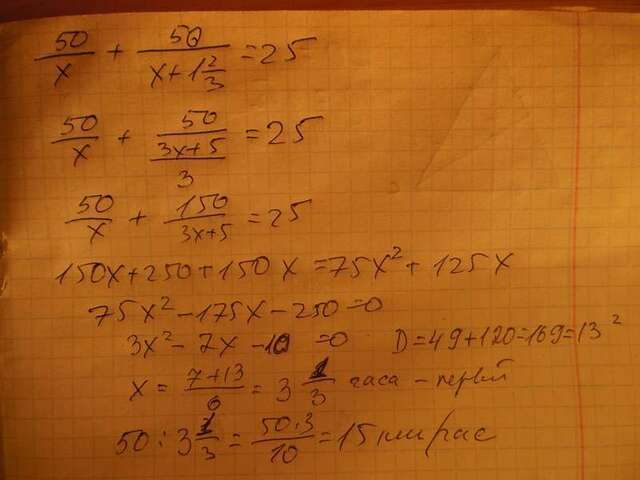 50/x + 50/(x+1 2/3) = 25
50/x + 50/((3x+5)/3) = 25
50/x + 150/(3x+5) = 25
150x+250+150x=75x²+125x
75x²-175x-250=0
3x²-7x-10=0 D=49+120=169=13²
x = (7+13)/6 = 3 1/3 часа - первый
50:3 1/3 = 50·3/10 = 15 км